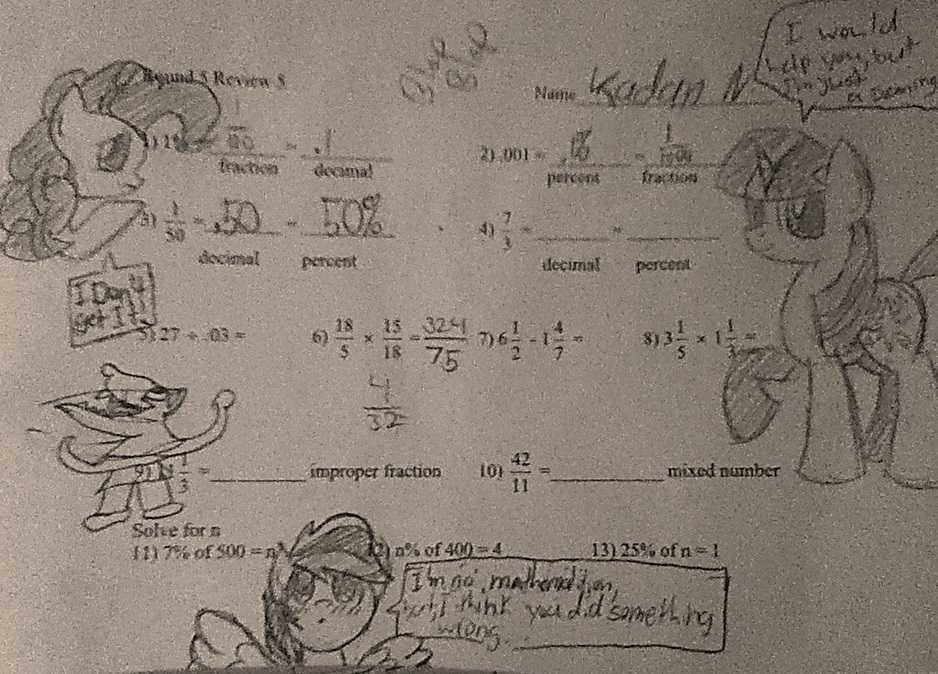 I would
help you, but
I'm just
a drawing
Blah
Blah
Round 5 Review 5
Name Kadem N
1
100
fraction decimal
= .1
2) .001 = .1% = 1/1000
percent fraction
3) 1/50 = .50 = 50%
decimal percent
4) 7/3 = ________ = ________
decimal percent
I Don't
get It!
27 ÷ .03 =
6) 18/5 × 15/18 = 324/75
7) 6 1/2 - 1 4/7 =
8) 3 1/5 × 1 1/3 =
4/32
1/3 = ________ improper fraction
10) 42/11 = ________ mixed number
Solve for n
11) 7% of 500 = n
12) n% of 400 = 4
13) 25% of n = 1
I'm no mathematician,
but I think you did something
wrong.